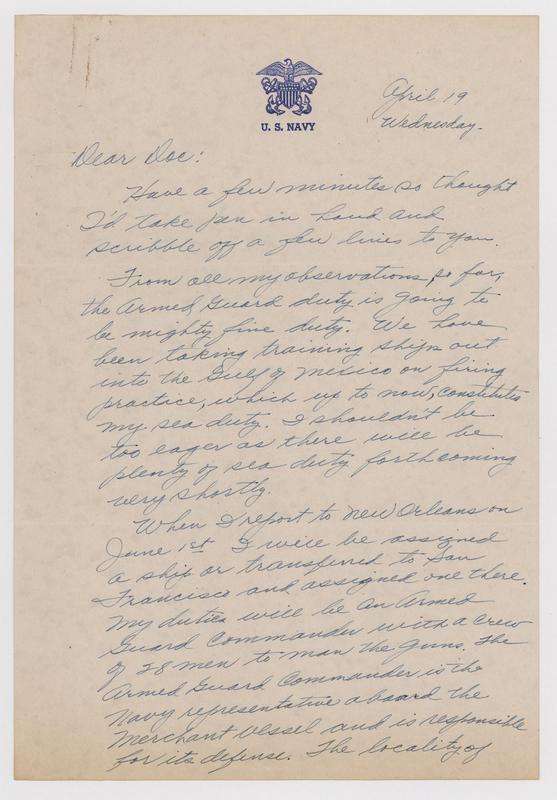 U. S. NAVY
April 19
Wednesday.
Dear Doc:
Have a few minutes so thought
I'd take pen in hand and
scribble off a few lines to you.
From all my observations, so far,
the Armed Guard duty is going to
be mighty fine duty. We have
been taking training ships out
into the Gulf of Mexico on firing
practice, which up to now, constitutes
my sea duty. I shouldn't be
too eager as there will be
plenty of sea duty forthcoming
very shortly.
When I report to New Orleans on
June 1st I will be assigned
a ship or transferred to San
Francisco and assigned one there.
My duties will be an Armed
Guard Commander with a crew
of 28 men to man the guns. The
Armed Guard Commander is the
Navy representative aboard the
Merchant Vessel and is responsible
for its defense. The locality of